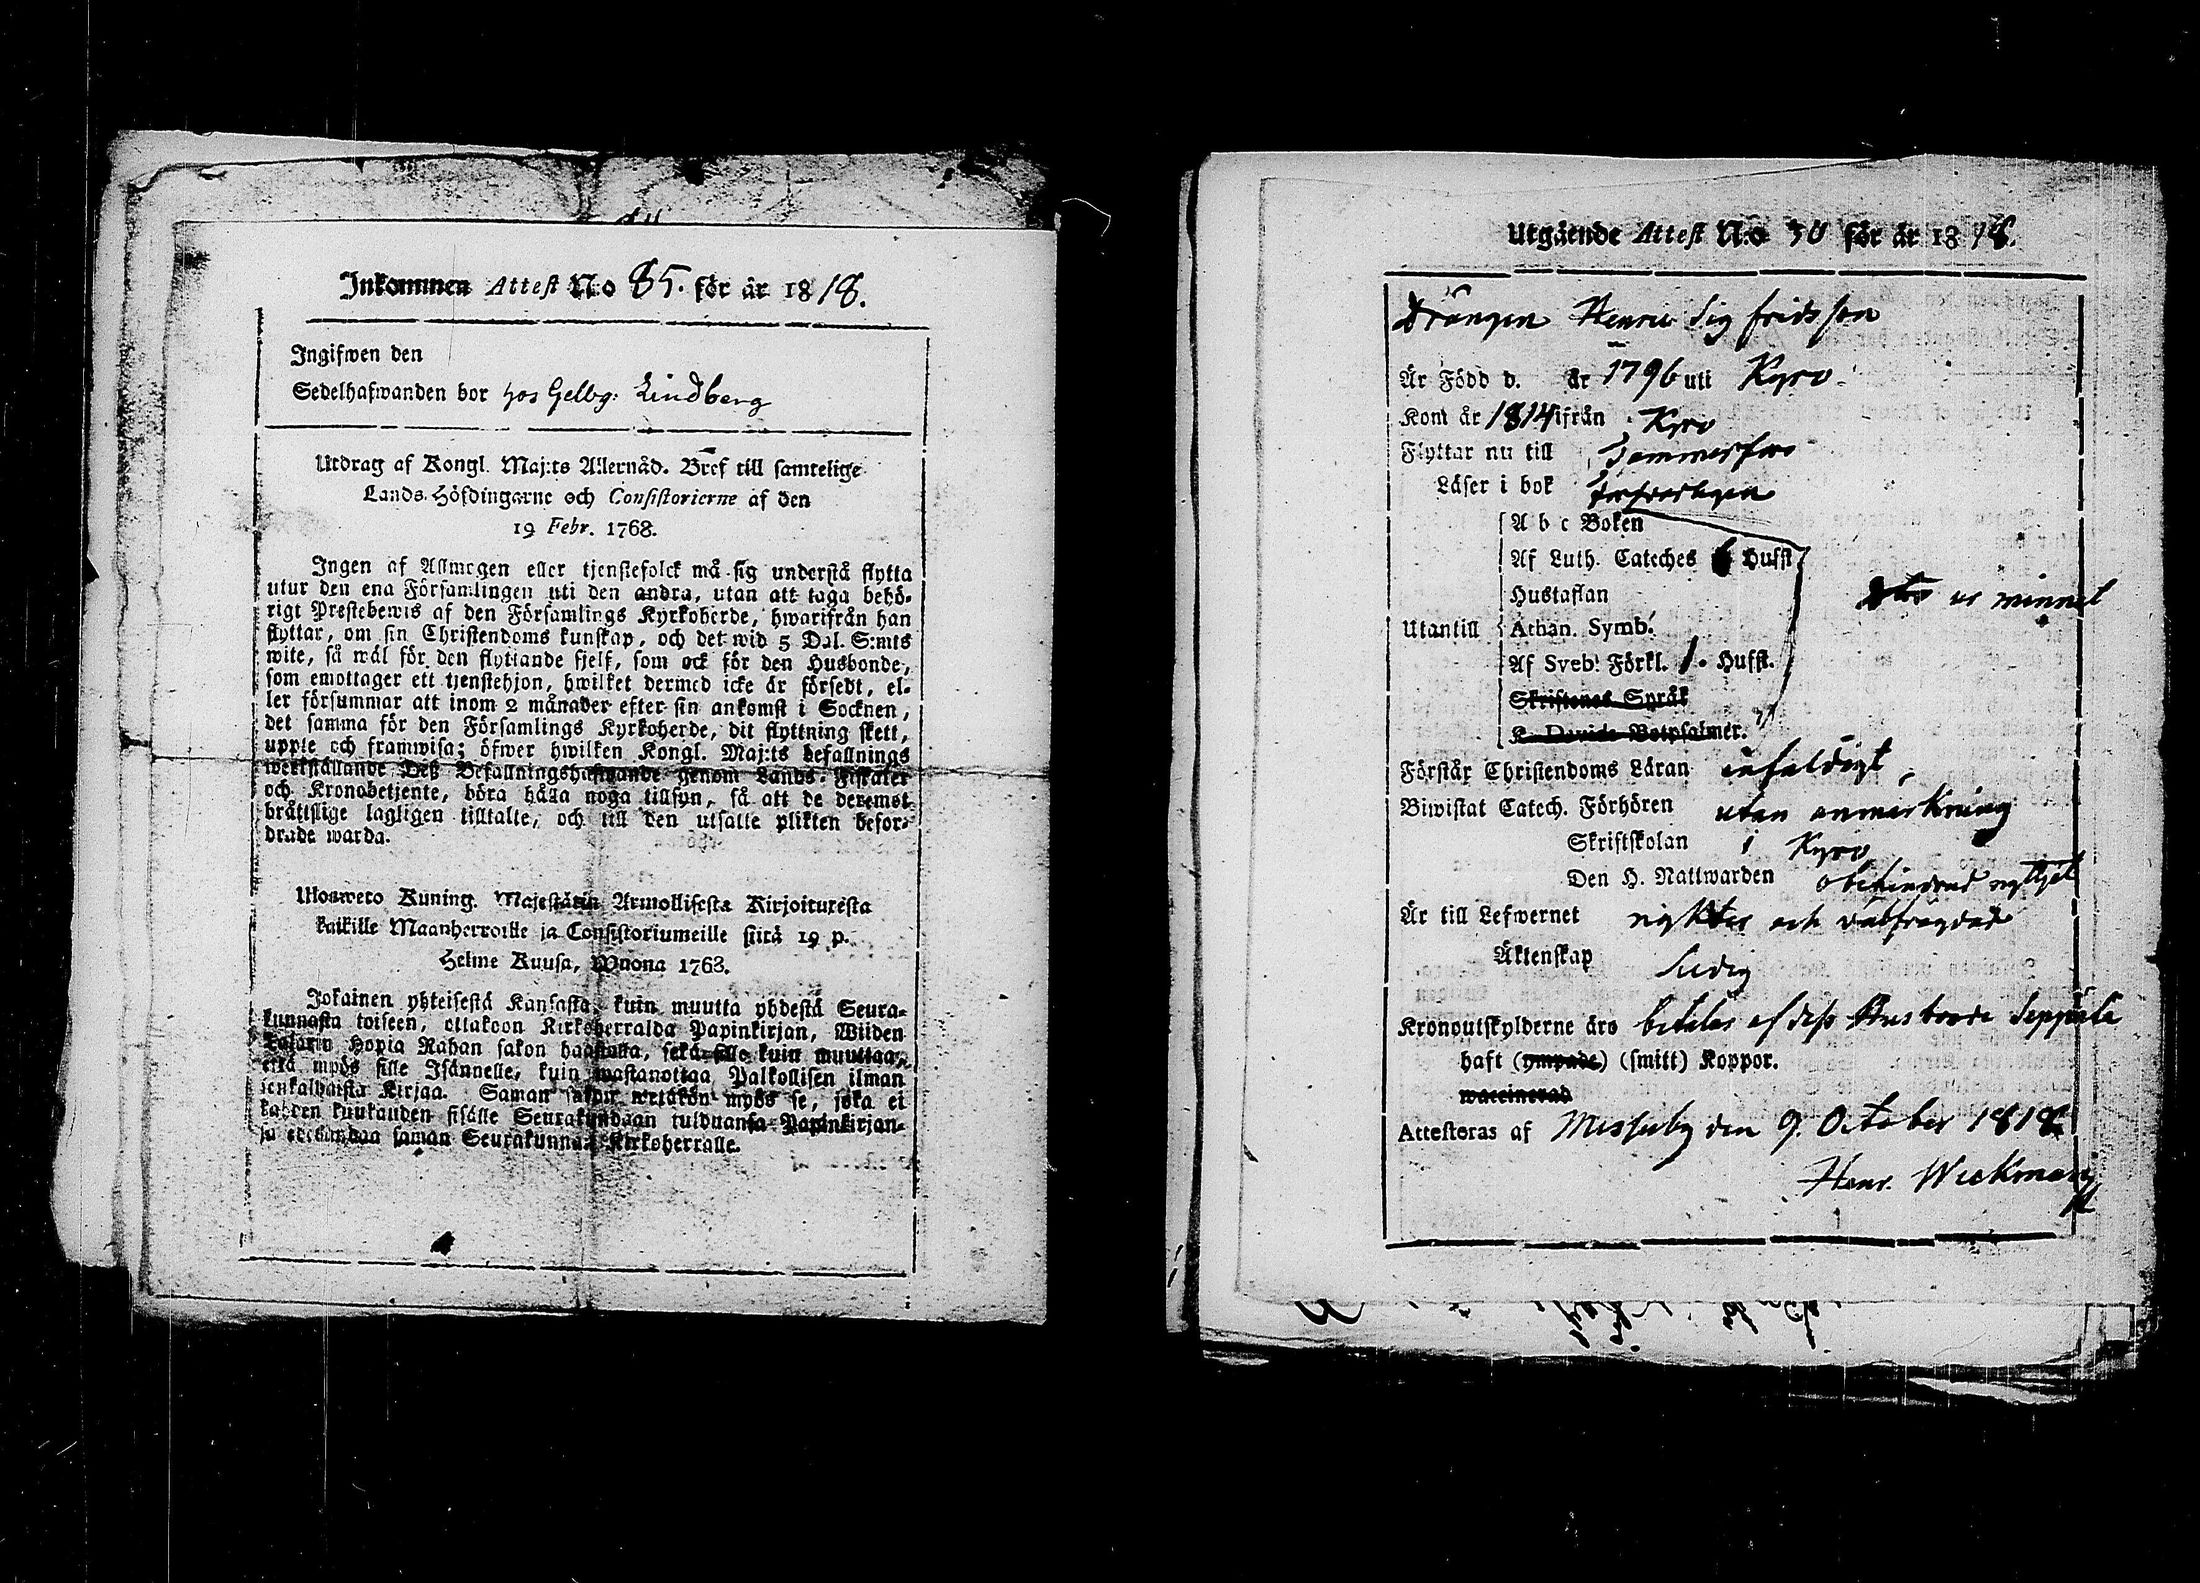 Inkommen Attest No 85. för år 1818.
Ingifwen den
Sedelhafwanden bor hos Gelbg: Lindberg
Utdrag af Kongl. Maj:ts Allernåd. Bref till samtelige
Lands-Höfdingarne och Consistorierne af den
19 Febr. 1768.
Ingen af Allmogen eller tjenstefolck må sig understå flytta
utur den ena Församlingen uti den andra, utan att taga behö-
rigt Prestebewis af den Församlings Kyrkoherde, hwarifrån han
flyttar, om sin Christendoms kunskap, och det wid 5 Dal. S:mts
wite, så wäl för den flyttande sjelf, som ock för den Husbonde,
som emottager ett tjenstehjon, hwilket dermed icke är försedt, el-
ler försummar att inom 2 månader efter sin ankomst i Socknen,
det samma för den Församlings Kyrkoherde, dit flyttning skett,
uppte och framwisa; öfwer hwilken Kongl. Maj:ts befallnings
werkställande Deß Befallningshafwande genom Lands-Fiskaler
och Kronobetjente, böra hålla noga tillsyn, så att de deremot
bråttslige lagligen tilltalte, och till den utsatte plikten befor-
drade warda.
Ulosweto Kuning. Majestätin Armollisesta Kirjoituresta
kaikille Maanherroille ja Consistoriumeille siitä 19 p.
Helme Kuusa, Wuona 1768.
Jokainen yhteisestä Kansasta, kuin muutta yhdestä Seura-
kunnasta toiseen, ottakoon Kirkoherralda Papinkirjan, Wiiden
Talarin Hopia Rahan sakon haastolla, sekä sille kuin muuttaa,
että myös sille Isännelle, kuin wastanottaa Palkollisen ilman
senkalhaista Kirjaa. Saman sakon wetäkön myös se, joka ei
kahden kuukauden sisälle Seurakundaan tulduansa Papinkirjan-
sa edesandaa saman Seurakunnan Kirkoherralle.
Utgående Attest N:o 30 för år 1818.
Drängen Henric Sigfridsson
Är Född d. år 1796 uti Kyro
Kom år 1814 ifrån Kyro
Flyttar nu till Tammerfors
Läser i bok
A b c Boken
Af Luth. Cateches 6 Hufst.
Hustaflan ur minnet
Utantill Athan. Symb.
Af Sveb. Förkl. 1. Hufst.
Skriftenes Språk
K. Davids Botpsalmer.
Förstår Christendoms Läran enfaldigt
Biwistat Catech. Förhören utan anmärkning
Skriftskolan i Kyro
Den H. Nattwarden obehindrad nyttjat
Är till Lefwernet nykter och wälfrägdad
Äktenskap ledig
Kronoutskylderne äro betalas af deß Husbonde Seppälä
haft (ympade) (smitt) Koppor.
waccinerad
Attesteras af Messuby den 9. October 1818
Henr. Wickman